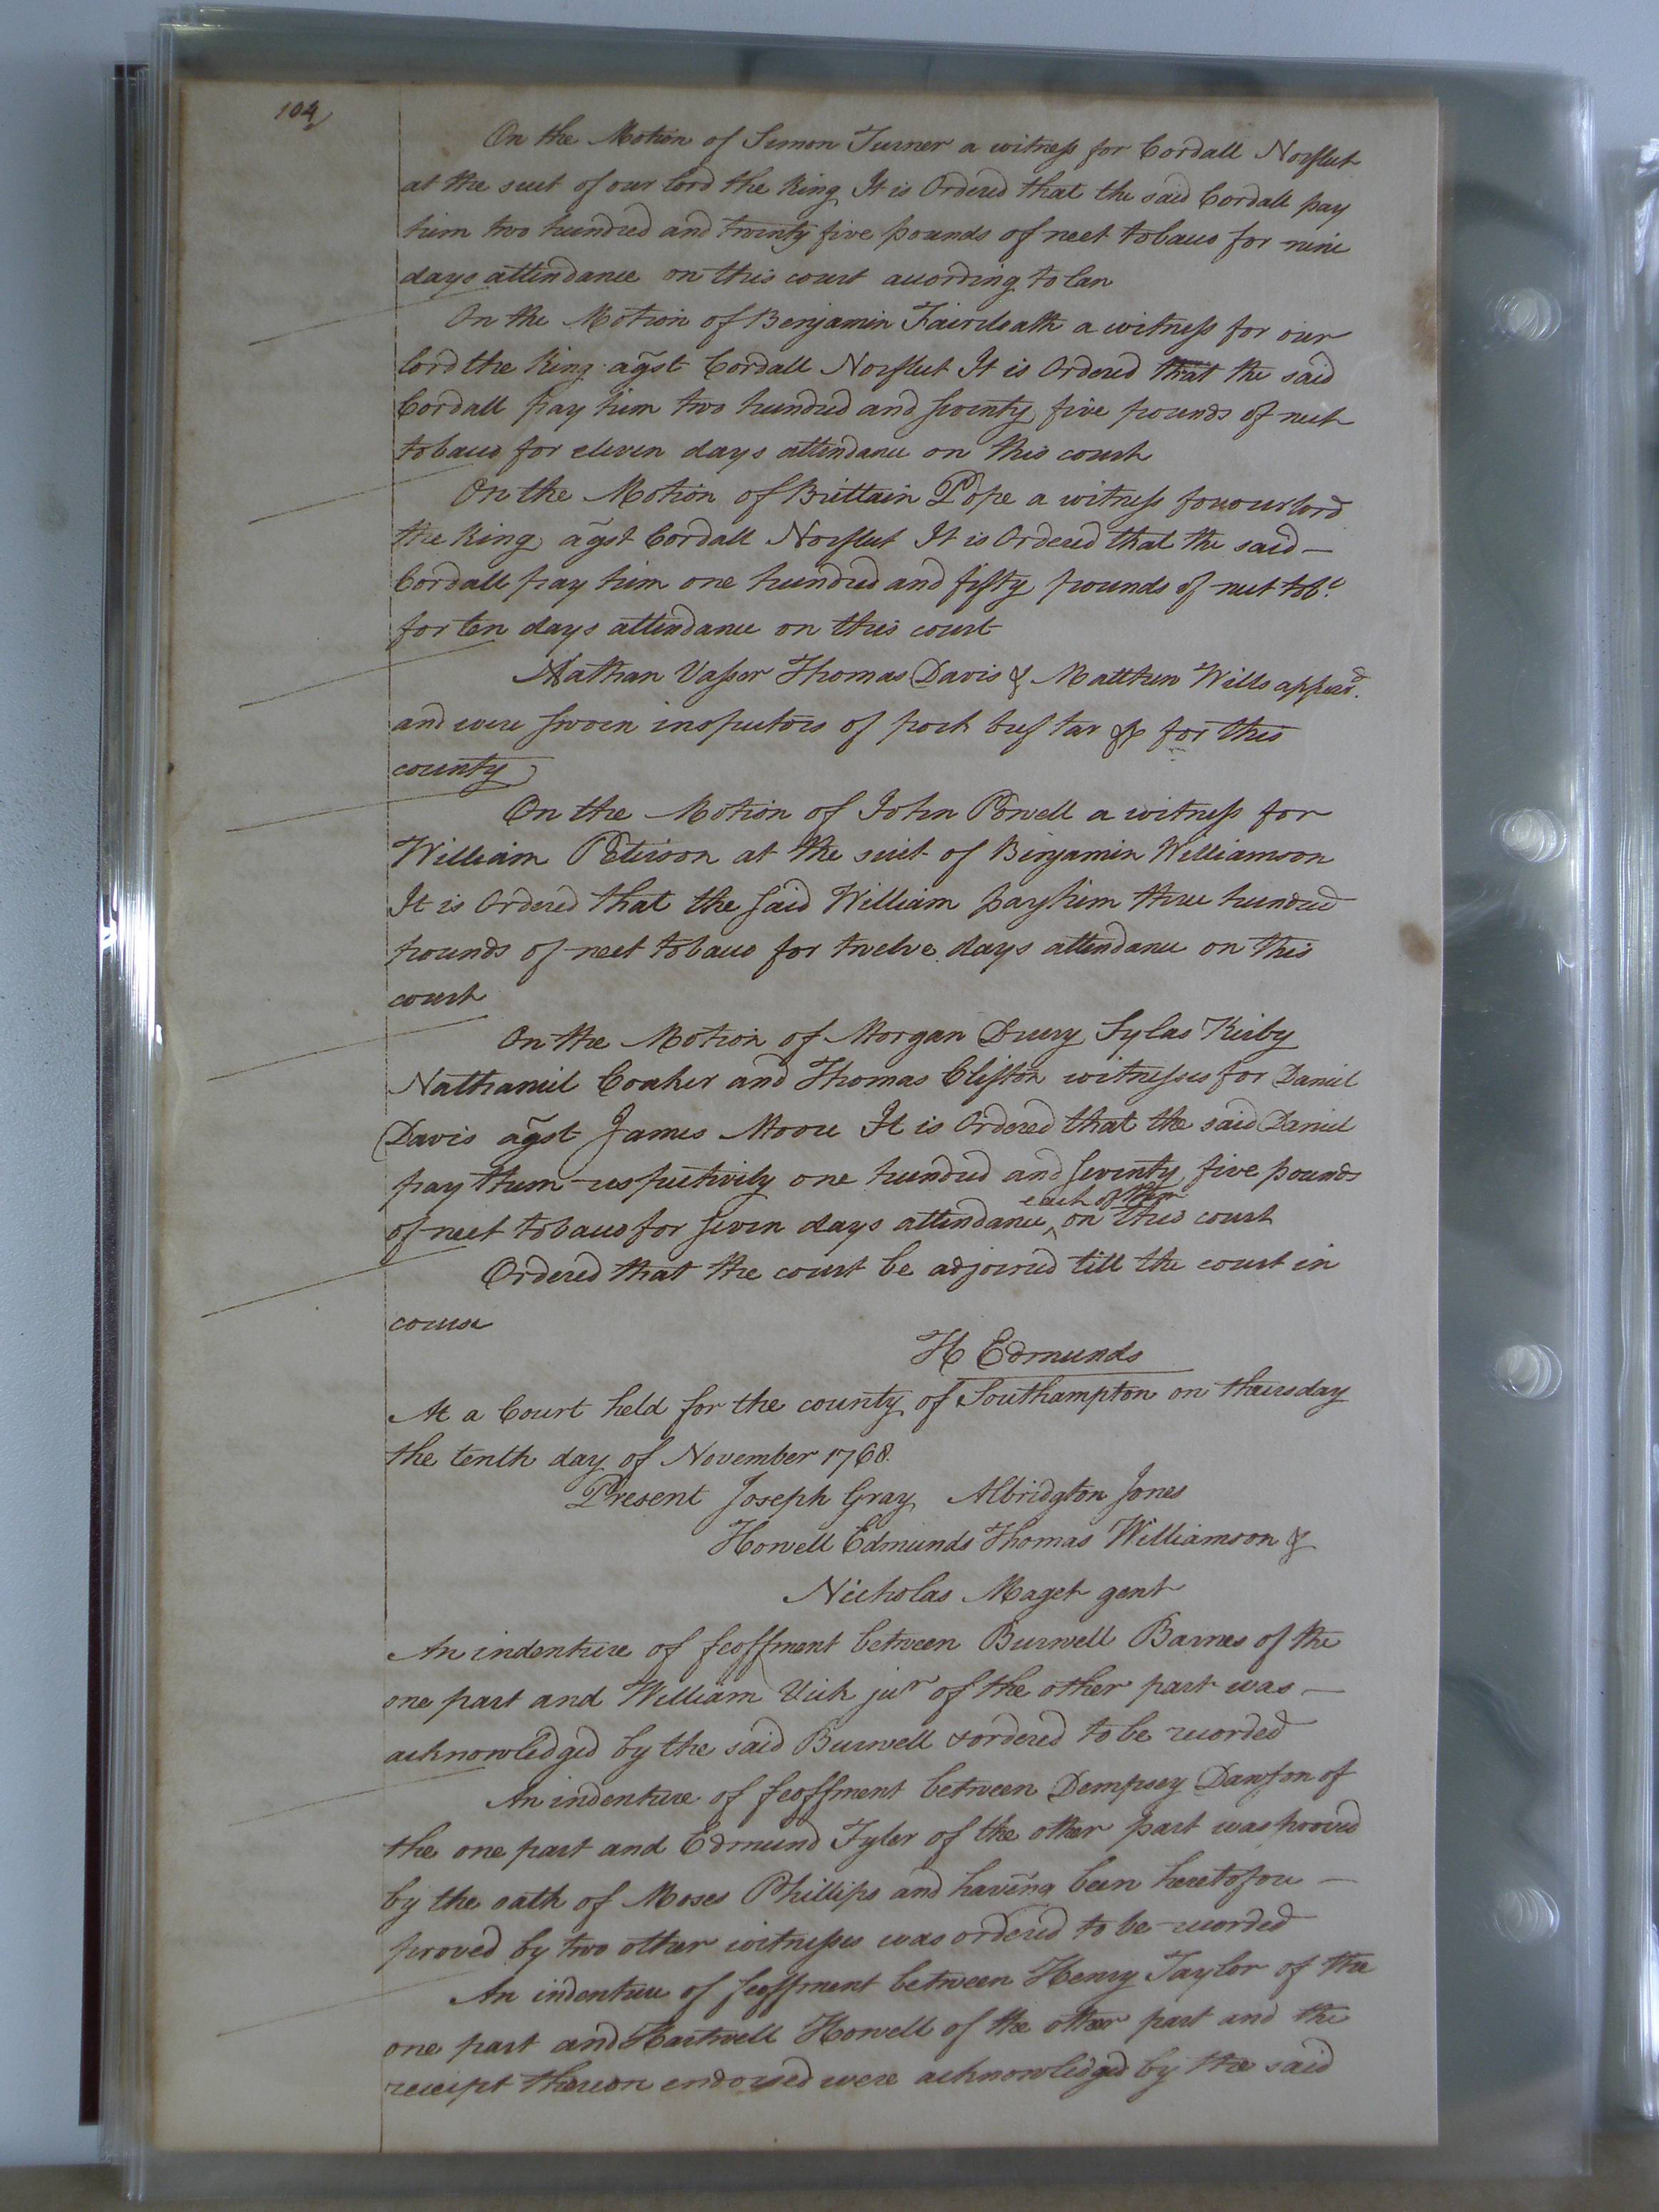 104
On the Motion of Simon Turner a witness for Cordall Norfleet
at the suit of our lord the King It is Ordered that the said Cordall pay
him two hundred and twenty five pounds of neet tobacco for nine
days attendance on this court according to law
On the Motion of Benjamin Faircloath a witness for our
lord the King agst Cordall Norfleet It is Ordered that the said
Cordall pay him two hundred and seventy five pounds of neet
tobacco for eleven days attendance on this court
On the Motion of Brittain Pope a witness for our lord
the King agst Cordall Norfleet It is Ordered that the said —
Cordall pay him one hundred and fifty pounds of neet tobo.
for ten days attendance on this court
Nathan Vasser Thomas Davis & Matthew Wills appeard.
and were sworn inspectors of pork beef tar &c for this
county
On the Motion of John Powell a witness for
William Peterson at the suit of Benjamin Williamson
It is Ordered that the said William pay him three hundred
pounds of neet tobacco for twelve days attendance on this
court
On the Motion of Morgan Drury Sylas Kirby
Nathaniel Coaker and Thomas Clifton witnesses for Daniel
Davis agst James Moore It is Ordered that the said Daniel
pay them respectively one hundred and seventy five pounds
of neet tobacco for seven days attendance ^ each of them on this court
Ordered that the court be adjorned till the court in
course
H Edmunds
At a Court held for the county of Southampton on thursday
the tenth day of November 1768.
Present Joseph Gray Albridgton Jones
Howell Edmunds Thomas Williamson &
Nicholas Maget gent
An indenture of feoffment between Burwell Barnes of the
one part and William Vick junr of the other part was —
acknowledged by the said Burwell & ordered to be recorded
An indenture of feoffment between Dempsey Dawson of
the one part and Edmund Tyler of the other part was prooved
by the oath of Moses Phillips and having been heretofore —
proved by two other witnesses was ordered to be recorded
An indenture of feoffment between Henry Taylor of the
one part and Hartwell Howell of the other part and the
receipt thereon endorsed were acknowledged by the said